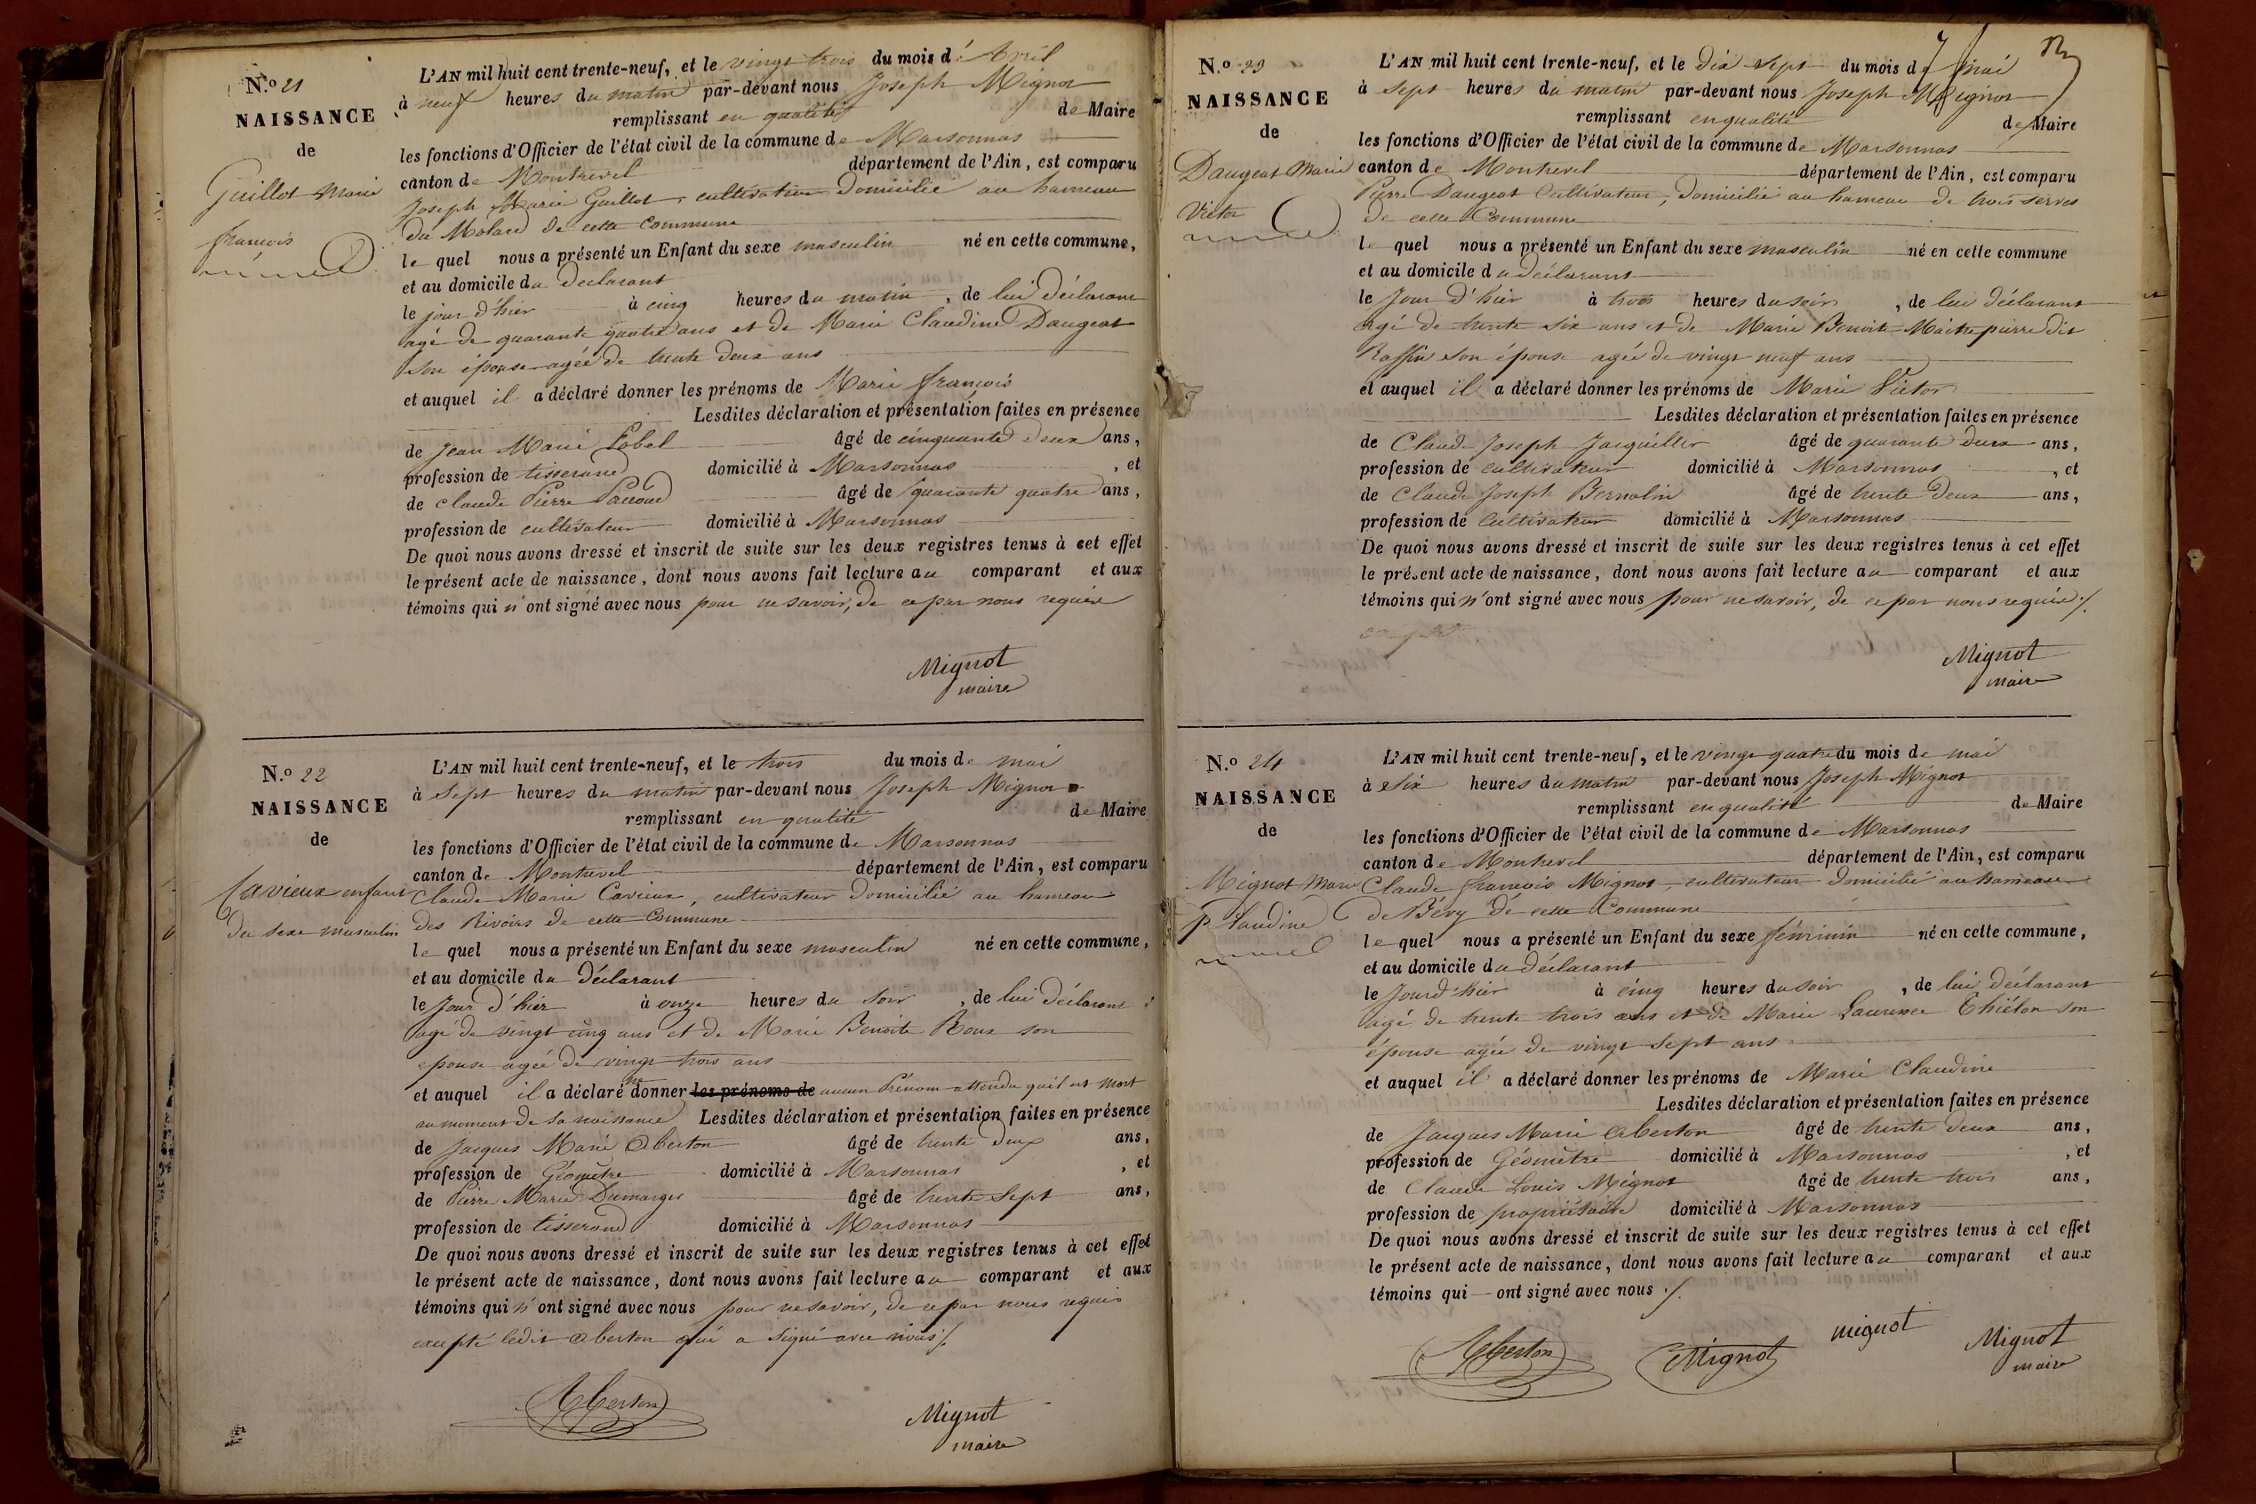 N.º 21
NAISSANCE
de
Guillot Marie
françois
L'AN mil huit cent trente-neuf, et le vingt trois du mois d'Avril
à neuf heures du matin par-devant nous Joseph Mignot
remplissant en qualité de Maire
les fonctions d'Officier de l'état civil de la commune de Marsonnas
canton de Montrevel département de l'Ain, est comparu
Joseph Marie Guillot, cultivateur domicilié au hameau
du Molard de cette commune
le quel nous a présenté un Enfant du sexe masculin né en cette commune,
et au domicile du déclarant
le jour d'hier à cinq heures du matin, de lui déclarant
agé de quarante quatre ans et de Marie Claudine Daugeat
son épouse agée de trente deux ans
et auquel il a déclaré donner les prénoms de Marie françois
Lesdites déclaration et présentation faites en présence
de Jean Marie Lobel âgé de cinquante deux ans,
profession de tisserand domicilié à Marsonnas, et
de Claude Pierre âgé de quarante quatre ans,
profession de cultivateur domicilié à Marsonnas
De quoi nous avons dressé et inscrit de suite sur les deux registres tenus à cet effet
le présent acte de naissance, dont nous avons fait lecture au comparant et aux
témoins qui n'ont signé avec nous pour ne savoir, de ce par nous requis
Mignot
maire
N.º 22
NAISSANCE
de
Cavieux enfant
du sexe masculin
L'AN mil huit cent trente-neuf, et le trois du mois de mai
à Sept heures du matin par-devant nous Joseph Mignot
remplissant en qualité de Maire
les fonctions d'Officier de l'état civil de la commune de Marsonnas
canton de Montrevel département de l'Ain, est comparu
Claude Marie Cavieux, cultivateur domicilié au hameau
des Rivoirs de cette Commune
le quel nous a présenté un Enfant du sexe masculin né en cette commune,
et au domicile du déclarant
le Jour d'hier à onze heures du soir, de lui déclarant
agé de vingt cinq ans et de Marie Benoite Roux son
epouse agée de vingt trois ans
et auquel il a déclaré ne donner les prénoms de aucun Prénom attendu qu'il est mort
au moment de sa naissance Lesdites déclaration et présentation faites en présence
de Jacques Marie Oberton âgé de trente deux ans,
profession de Géomètre domicilié à Marsonnas, et
de Pierre Marie Dumarger âgé de trente Sept ans,
profession de tisserand domicilié à Marsonnas
De quoi nous avons dressé et inscrit de suite sur les deux registres tenus à cet effet
le présent acte de naissance, dont nous avons fait lecture au comparant et aux
témoins qui n'ont signé avec nous pour ne savoir, de ce par nous requis
excepté ledit Oberton qui a signé avec nous ./.
Oberton
Mignot
maire
N.º 23
NAISSANCE
de
Daugeat Marie
Victor
L'AN mil huit cent trente-neuf, et le dix sept du mois de mai
à sept heures du matin par-devant nous Joseph Mignot
remplissant en qualité de Maire
les fonctions d'Officier de l'état civil de la commune de Marsonnas
canton de Montrevel département de l'Ain, est comparu
Pierre Daugeat Cultivateur, domicilié au hameau de trois serves
de cette Commune
le quel nous a présenté un Enfant du sexe masculin né en cette commune
et au domicile du déclarant
le Jour d'hier à trois heures du soir, de lui déclarant
agé de trente six ans et de Marie Benoite Maitrepierre dit
Raffin son épouse agée de vingt neuf ans
et auquel il a déclaré donner les prénoms de Marie Victor
Lesdites déclaration et présentation faites en présence
de Claude Joseph Jacquiller âgé de quarante deux ans,
profession de cultivateur domicilié à Marsonnas, et
de Claude Joseph Bernolin âgé de trente deux ans,
profession de Cultivateur domicilié à Marsonnas
De quoi nous avons dressé et inscrit de suite sur les deux registres tenus à cet effet
le présent acte de naissance, dont nous avons fait lecture au comparant et aux
témoins qui n'ont signé avec nous pour ne savoir, de ce par nous requis ./.
Mignot
maire
N.º 24
NAISSANCE
de
Mignot Marie
Claudine
L'AN mil huit cent trente-neuf, et le vingt quatre du mois de mai
à six heures du matin par-devant nous Joseph Mignot
remplissant en qualité de Maire
les fonctions d'Officier de l'état civil de la commune de Marsonnas
canton de Montrevel département de l'Ain, est comparu
Claude françois Mignot, cultivateur domicilié au hameau
de Bévy de cette Commune
le quel nous a présenté un Enfant du sexe féminin né en cette commune,
et au domicile du déclarant
le Jour d'hier à cinq heures du soir, de lui déclarant
agé de trente trois ans et de Marie Laurence Thiélon son
épouse agée de vingt sept ans
et auquel il a déclaré donner les prénoms de Marie Claudine
Lesdites déclaration et présentation faites en présence
de Jacques Marie Oberton âgé de trente deux ans,
profession de Géomètre domicilié à Marsonnas, et
de Claude Louis Mignot âgé de trente trois ans,
profession de propriétaire domicilié à Marsonnas
De quoi nous avons dressé et inscrit de suite sur les deux registres tenus à cet effet
le présent acte de naissance, dont nous avons fait lecture au comparant et aux
témoins qui ont signé avec nous ./.
Oberton Mignot mignot Mignot
maire